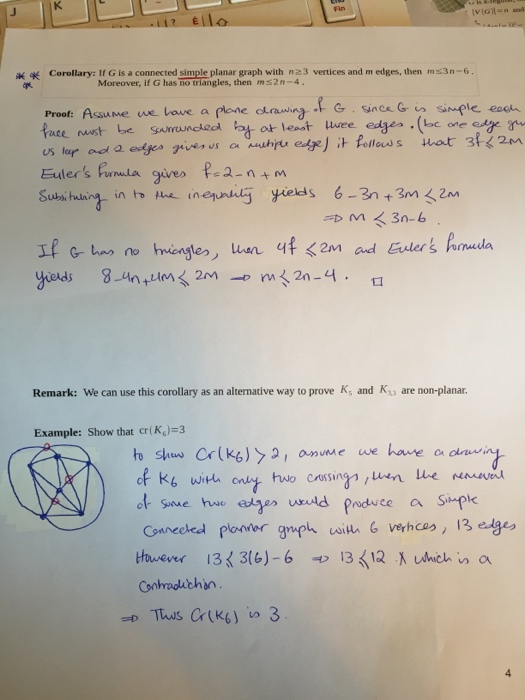 J
K
Fin
** Corollary: If G is a connected simple planar graph with n≥3 vertices and m edges, then m≤3n−6.
* Moreover, if G has no triangles, then m≤2n−4.
Proof: Assume we have a plane drawing of G. Since G is simple each
face must be surrounded by at least three edges. (bc one edge
us loop and 2 edges gives us a multiple edge) it follows that 3f ≤ 2m
Euler's Formula gives f=2-n+m
Subsituting in to the inequality yields 6-3n+3m ≤ 2m
⇒ m ≤ 3n-6.
If G has no triangles, then 4f ≤ 2m and Euler's formula
yields 8-4n+4m ≤ 2m → m ≤ 2n-4. □
Remark: We can use this corollary as an alternative way to prove K₅ and K₃,₃ are non-planar.
Example: Show that cr(K₆)=3
to show Cr(K6) > 2, assume we have a drawing
of K6 with only two crossings, then the removal
of some two edges would produce a simple
connected planar graph with 6 vertices, 13 edges
However 13 ≤ 3(6)-6 ⇒ 13 ≤ 12 X which is a
Contradiction.
⇒ Thus Cr(K6) is 3.
4